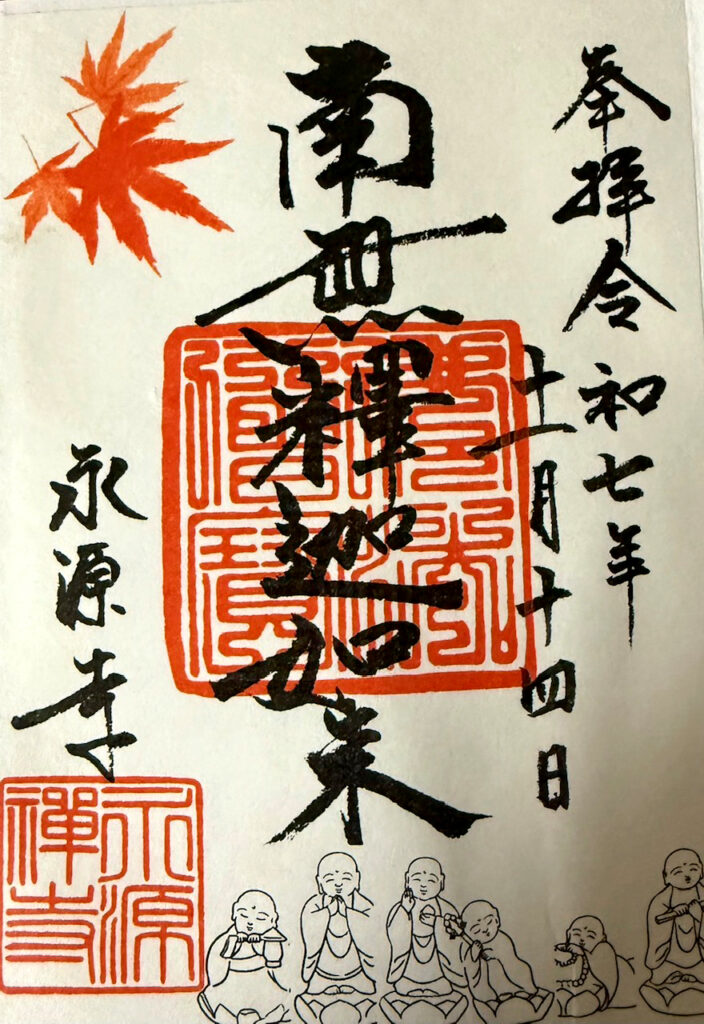 奉拝令和七年
十一月十四日
南無釋迦如来
永源寺
永源
禅寺